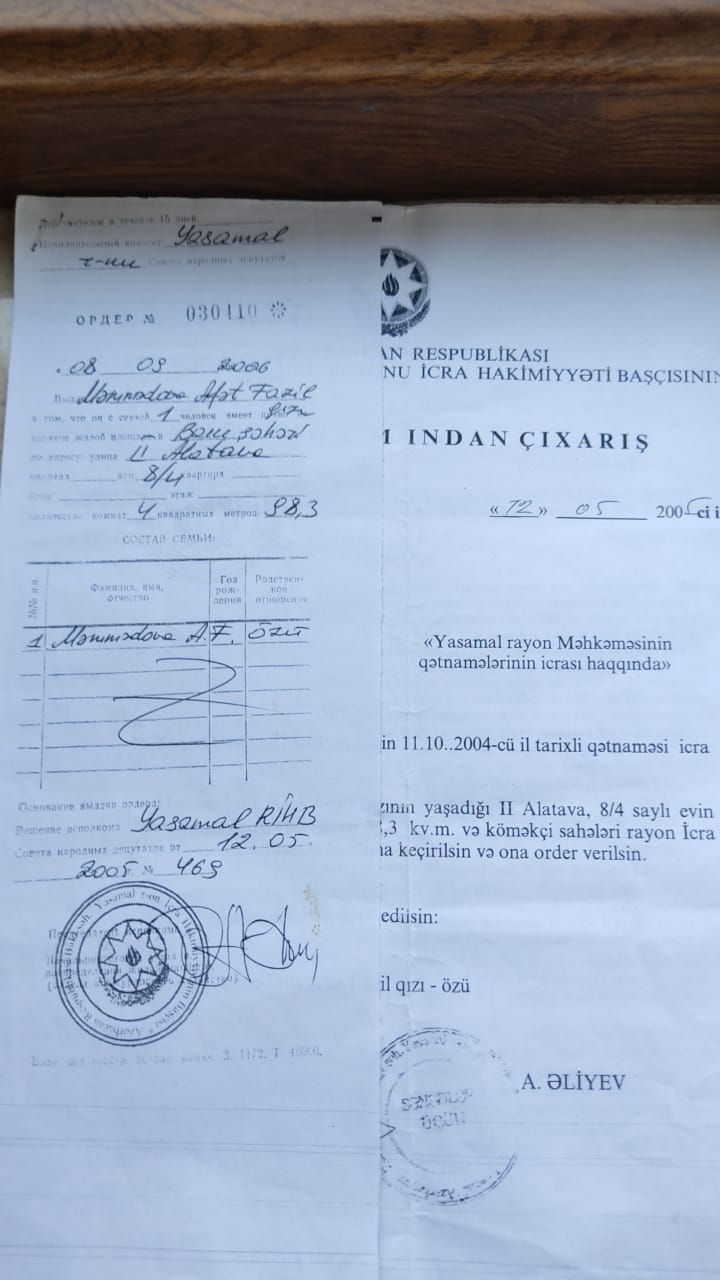 Действителен в течение 15 дней.
Исполнительный комитет Yasamal
r-nu Совета народных депутатов
ОРДЕР № 030110
08 09 2006
Məmmədova Afət Fazil
в том, что он с семьей 1 человек имеет
жилой площади в Bakı şəhəri
по адресу улица II Alatava
квартал дом 8/4 квартира
этаж
количество комнат 4 квадратных метров 98,3
СОСТАВ СЕМЬИ:
Фамилия, имя, отчество
Год рож- дения
Родствен- ное отношение
1 Məmmədova A.F. Özü
Основание выдачи ордера:
Решение исполкома Yasamal RİHB
Совета народных депутатов от 12.05.
2005 г. № 469
AN RESPUBLIKASI
NU İCRA HAKİMİYYƏTİ BAŞÇISININ
INDAN ÇIXARIŞ
«12» 05 2005ci i
«Yasamal rayon Məhkəməsinin
qətnamələrinin icrası haqqında»
in 11.10..2004-cü il tarixli qətnaməsi icra
zının yaşadığı II Alatava, 8/4 saylı evin
,3 kv.m. və köməkçi sahələri rayon İcra
na keçirilsin və ona order verilsin.
edilsin:
il qızı - özü
SƏNƏDLƏR
ÜÇÜN
A. ƏLİYEV